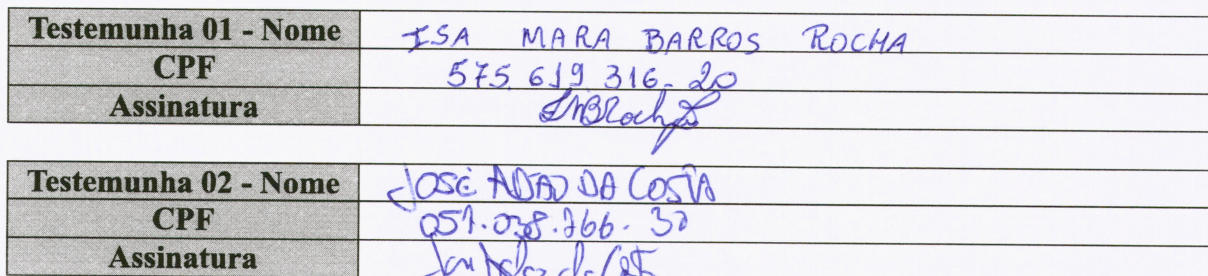 Testemunha 01 - Nome ISA MARA BARROS ROCHA
CPF 575.619.316-20
Assinatura
Testemunha 02 - Nome JOSÉ ADÃO DA COSTA
CPF
Assinatura